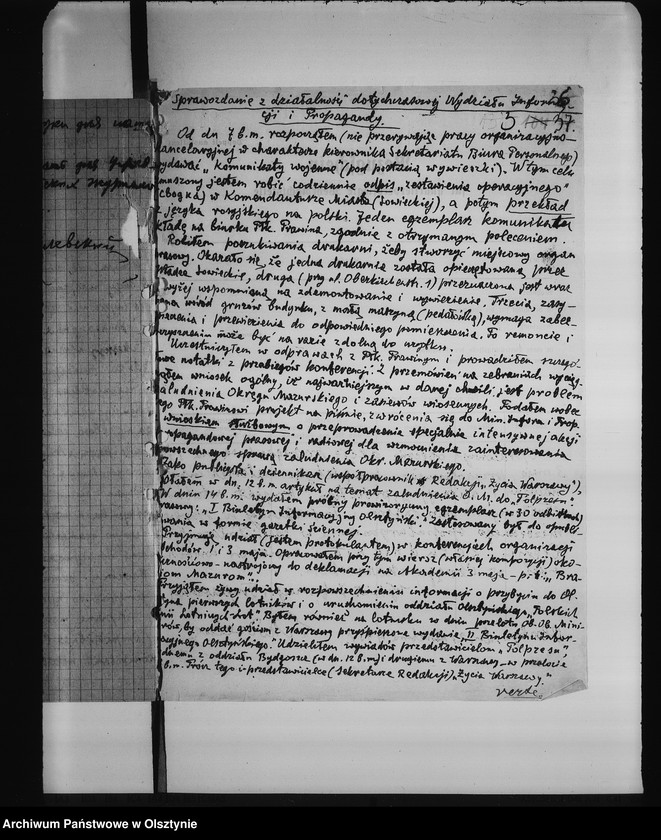 Sprawozdanie z działalności dotychczasowej Wydziału Informa-
cji i Propagandy.
26
3 37.
Od dn 7 b.m. rozpocząłem (nie przerywając pracy organizacyjno-
kancelaryjnej w charakterze kierownika Sekretariatu Biura Personalnego)
wydawać "komunikaty wojenne" (pod postacią wywieszki). W tym celu
zmuszony jestem robić codziennie odpis "zestawienia operacyjnego"
w Komendanturze Miasta (sowieckiej), a potym przekład
z języka rosyjskiego na polski. Jeden egzemplarz komunikatu
kładę na biurku Płk. Prawina, zgodnie z otrzymanym poleceniem.
Robiłem poszukiwania drukarni, żeby stworzyć miejscowy organ
prasowy. Okazało się, że jedna drukarnia została opieczętowana przez
władze sowieckie, druga (przy ul. Oberkirchenstr. 1) przeznaczona jest wraz
z wyżej wspomnianą na zdemontowanie i wywiezienie. Trzecia, zasy-
pana wśród gruzów budynku, z małą maszyną (pedałówką), wymaga zabez-
pieczenia i przewiezienia do odpowiedniego pomieszczenia. Po remoncie i
może być na razie zdolną do użytku.
Uczestniczyłem w odprawach z Płk. Prawinym i prowadziłem szczegó-
łowe notatki z przebiegów konferencji. Z przemówień na zebraniach wycią-
gałem wniosek ogólny, iż najważniejszym w danej chwili jest problem
zaludnienia Okręgu Mazurskiego i zasiewów wiosennych. Podałem wobec
tego Płk. Prawinowi projekt na piśmie, zwrócenia się do Min. Inform. i Prop.
z wnioskiem o przeprowadzenie specjalnie intensywnej akcji
propagandowej prasowej i radiowej dla wzmocnienia zainteresowania
powszechnego sprawą zaludnienia Okr. Mazurskiego.
Jako publicysta i dziennikarz (współpracownik Redakcji "Życia Warszawy"),
w dn. 12 b.m. artykuł na temat zaludnienia O.M. do "Polpressu".
W dniu 14 b.m. wydałem próbny prowizoryczny egzemplarz (w 30 odbitkach)
prasowy: "I Biuletyn Informacyjny Olsztyński". Zastosowany był do
w formie gazetki ściennej.
Przyjmuję udział (jestem protokulantem) w konferencjach organizacji
obchodów 1 i 3 maja. Opracowałem przy tym wiersz (własnej kompozycji) oko-
licznościowo-nastrojowy do deklamacji na Akademii 3 maja - p.t.: "Bra-
ciom Mazurom".
Przyjąłem żywy udział w rozpowszechnieniu informacji o przybyciu do Ol-
sztyna pierwszych lotników i o uruchomieniu oddziału Olsztyńskiego "Polskich
Linii Lotniczych Lot". Byłem również na lotnisku w dniu przelotu Ob. Ob. Mini-
strów, by oddać gościom z Warszawy przyśpieszone wydanie "II Biuletynu Infor-
macyjnego Olsztyńskiego". Udzieliłem wywiadów przedstawicielom "Polpressu",
jednemu z oddziału Bydgoszcz (w dn. 12 b.m.) i drugiemu z Warszawy - w przelocie
b.m. Prócz tego i przedstawicielce (sekretarce Redakcji) "Życia Warszawy".
verte.
Archiwum Państwowe w Olsztynie